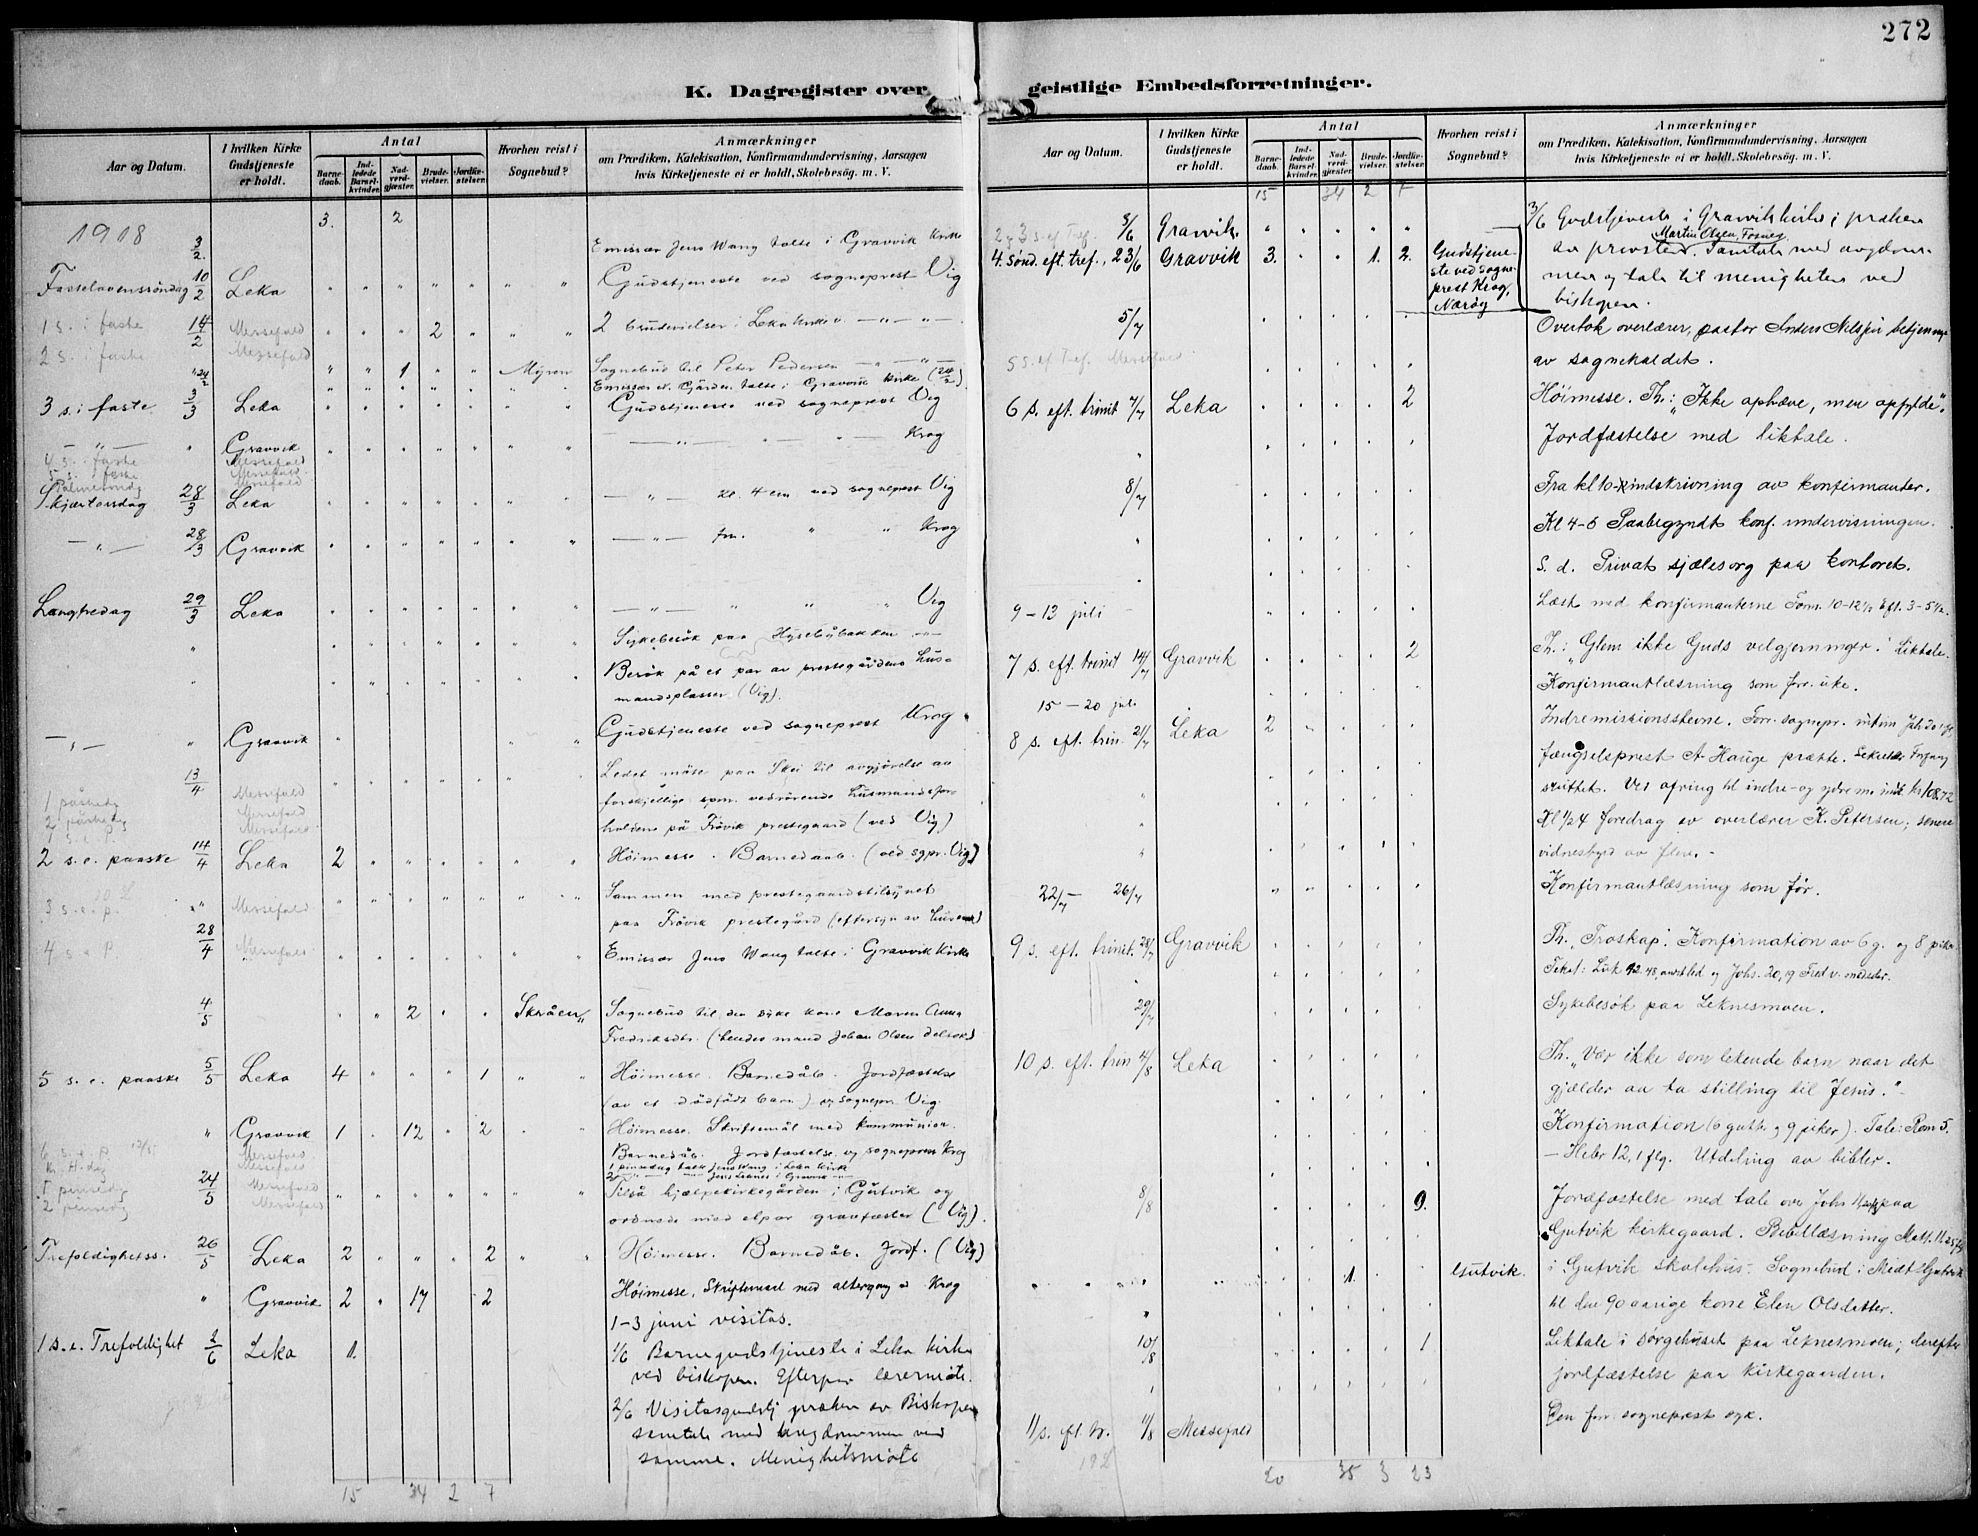 272
K. Dagregister over geistlige Embedsforretninger.
Aar og Datum.
I hvilken Kirke Gudstjeneste er holdt.
Antal
Barne-daab.
Ind-ledede Barsel-kvinder.
Nad-verd-gjæster.
Brude-vielser.
Jordfæ-stelser.
Hvorhen reist i Sognebud?
Anmærkninger
om Prædiken, Katekisation, Konfirmandundervisning, Aarsagen
hvis Kirketjeneste ei er holdt, Skolebesøg. m. V.
3. 2
1918
3/2. Emissær Jens Wang talte i Gravvik kirke
Fastelavenssöndag 10/2 Leka Gudstjeneste ved sogneprest Vig
1 s. i faste 14/2 Messefald 2 2 brudevielser i Leka kirke — " — " —
2 s. i faste Messefald
1 Myren Sognebud til Peter Pedersen — " — " —
24/2 talte i Gravvik kirke (24/2).
3 s. i faste 3/3 Leka Gudstjeneste ved sogneprest Vig
— " — " Gravvik — " — " — " — Krog
4 s. i faste Messefald
5 s. i faste Messefald
Palmesöndg Messefald
Skjærtorsdag 28/3 Leka — " — kl. 4 em. ved sogneprest Vig
— " — 28/3 Gravvik — " — fm. " " Krog
Langfredag 29/3 Leka — " — " " " Vig
Sykebesök paa Hysebybakken — " —
Besök på et par av prestegårdens hus-
mandsplasser (Vig).
— " — " Gravvik Gudstjeneste ved sogneprest Krog.
13/4 Ledet möte paa Skei til avgjörelse av
1 påskedg Messefald forskjellige spm. vedrörende husmandsfor-
2 påskedg Messefald holdene på Frövik prestegaard (ved Vig)
1 s. e. P. Messefald
2 s. e. paaske 14/4 Leka 2 Höimesse. Barnedaab. (ved sgpr. Vig)
3 s. e. p. Messefald Sammen med prestegaardstilsynet
paa Frövik prestegård (eftersyn av husene)
4 s. e. P. 28/4 Messefald Emissær Jens Wang talte i Gravvik kirke
4/5 2 Skråen Sognebud til den syke kone Maren Anna
Fredriksdtr. (hendes mand Johan Olsen deltok)
5 s. e. paaske 5/5 Leka 4 1 Höimesse. Barnedåb. Jordfæstelse
(av et dödfödt barn) og sognepr. Vig.
" Gravvik 1 12 2 Höimesse. Skriftemål med kommunion.
6 s. e. P. 12/5 Messefald Barnedåb. Jordfæstelse og sogneprest Krog
Kr. H. dag Messefald 1 pinsedag talte Jens Wang i Leka kirke
1 pinsedg 24/5 Messefald Tilså hjælpekirkegården i Gutvik og
2 pinsedg Messefald ordnede med et par gravfæster (Vig).
Trefoldighetss. 26/5 Leka 2 2 Höimesse. Barnedåb. Jordf. (Vig)
" Gravvik 2 17 2 Höimesse, Skriftemaal med altergang v Krog
1–3 juni visitas.
1 s. e. Trefoldighet 2/6 Leka 1. 1/6 Barnegudstjeneste i Leka kirke
ved biskopen. Efterpaa lærermöte.
2/6 Visitasgudstj præken av Biskopen
samtale med ungdommen ved
samme. Menighetsmöte
15 34 2 7
Aar og Datum.
I hvilken Kirke Gudstjeneste er holdt.
Antal
Barne-daab.
Ind-ledede Barsel-kvinder.
Nad-verd-gjæster.
Brude-vielser.
Jordfæ-stelser.
Hvorhen reist i Sognebud?
Anmærkninger
om Prædiken, Katekisation, Konfirmandundervisning, Aarsagen
hvis Kirketjeneste ei er holdt, Skolebesög. m. V.
15 34 2 7
3/6 Gudstjeneste i Gravvik kirke; præken
3/6 Gravvik. Martin Olsen, Fosnes
av provsten. Samtale med ungdom-
4. sönd. eft. tref., 23/6 Gravvik 3. 1. 2. Gudstjene-ste ved sogne-prest Krog, Næröy men og tale til menigheten ved
biskopen.
5/7 Overtok overlærer, pastor Anders betjeninge
5 S. ef Tref. Messefald av sognekaldet.
6 s. eft. trinit 7/7 Leka 2 Höimesse. Th.: „Ikke ophæve, men opfylde".
Jordfæstelse med liktale.
8/7 Fra kl 10- indskrivning av konfirmanter.
Kl 4-6 Paabegyndt konf. undervisningen.
S. d. Privat sjælesorg paa kontoret.
9 – 13 juli Læst med konfirmanterne Form. 10-12½ Eft. 3-5½.
7 s. eft. trinit 14/7 Gravvik 2 Th.: „Glem ikke Guds velgjerninger". Liktale.
15 – 20 juli Konfirmantlæsning som forr. uke.
8 s. eft. trin. 21/7 Leka 2 Indremissionsstevne. Forr. sognepr.
fængselsprest A. Hauge prækte.
stiftet. Ved ofring til indre- og ydre m. ind. kr 108.72
Kl ½4 foredrag av overlærer K. Petersen; senere
vidnesbyrd av flere. –
22/7 – 26/7 Konfirmantlæsning som för.
9 s. eft. trinit. 28/7 Gravvik Th. „Troskap". Konfirmation av 6 g. og 8 piker
Tekst: Luk 12.48, og Johs. 20,19
29/7 Sykebesök paa Leknesmoen.
10 s. eft. trin 4/8 Leka Th. „Vær ikke som lekende barn naar det
gjælder aa ta stilling til Jesus." –
Konfirmation (6 gutt. og 9 piker). Tale: Rom 5.
– Hebr 12, 1 flg. Utdeling av bibler.
8/8 9. Jordfæstelse med tale over Johs 11 paa
Gutvik kirkegaard. Bibellæsning Matt. 11
1. Gutvik. i Gutvik skolehus. Sognebud i Gutvik
til den 90 aarige kone Elen Olsdatter.
10/8 1 Liktale i sörgehuset paa Leknesmoen; derefter
jordfæstelse paa kirkegaarden.
11 s. eft. tr. 11/8 Messefald Den forr. sogneprest syk.
20 35 3 23